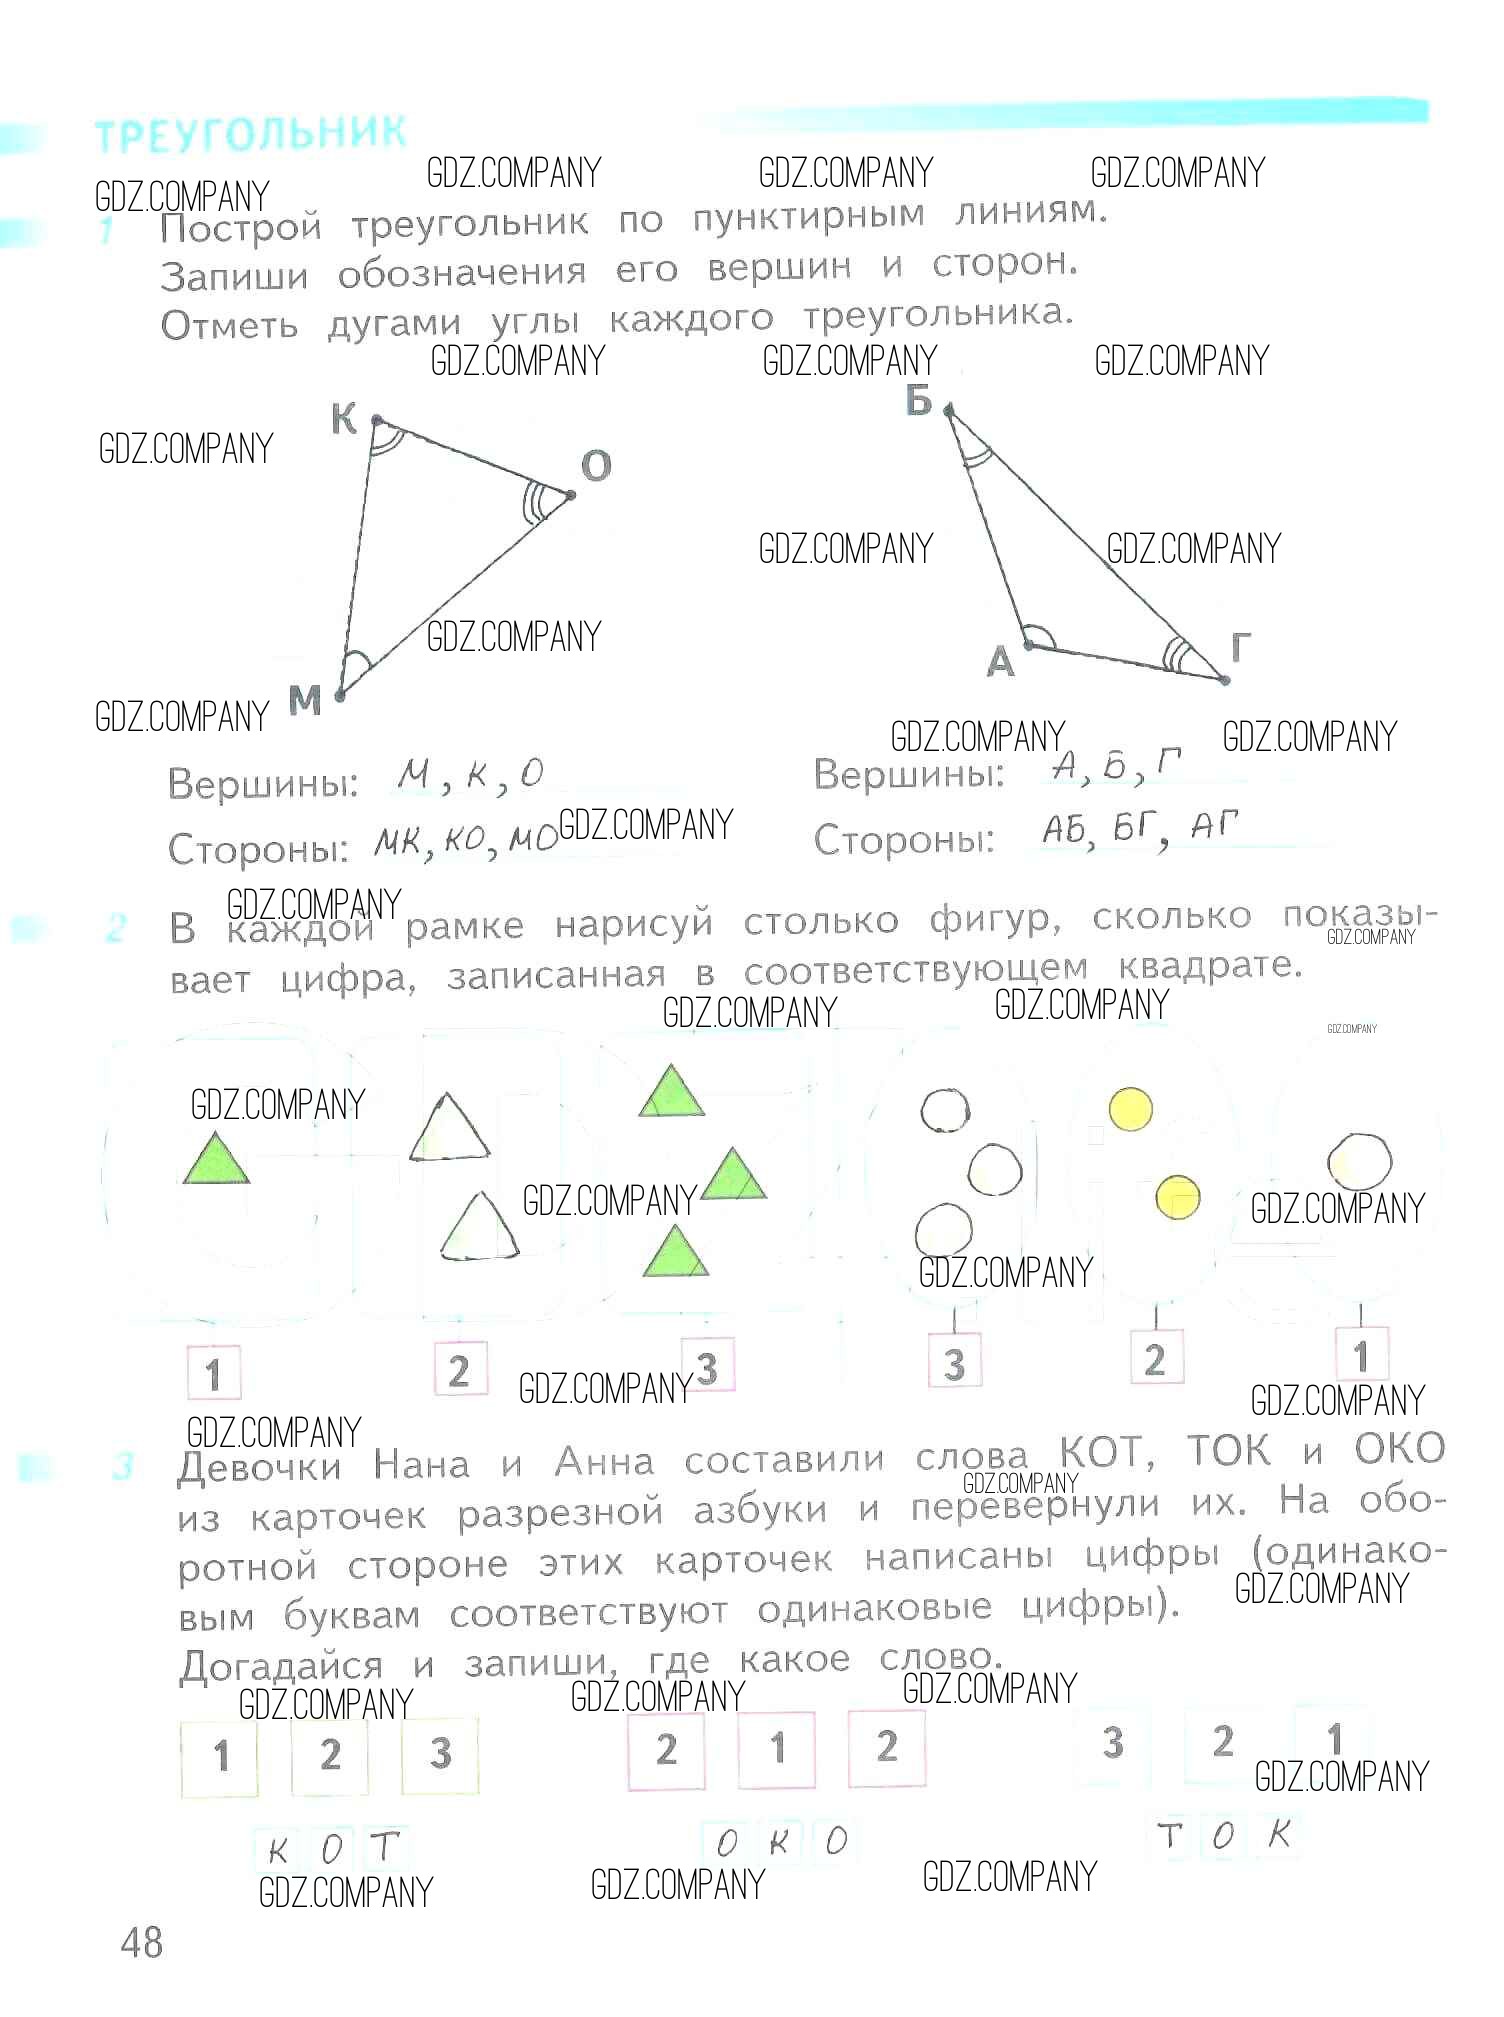 ТРЕУГОЛЬНИК
GDZ.COMPANY GDZ.COMPANY GDZ.COMPANY GDZ.COMPANY
1 Построй треугольник по пунктирным линиям.
Запиши обозначения его вершин и сторон.
Отметь дугами углы каждого треугольника.
GDZ.COMPANY GDZ.COMPANY GDZ.COMPANY
К Б
GDZ.COMPANY О
GDZ.COMPANY GDZ.COMPANY
GDZ.COMPANY
А Г
GDZ.COMPANY М
GDZ.COMPANY GDZ.COMPANY
Вершины: М, К, О Вершины: А, Б, Г
Стороны: МК, КО, МО GDZ.COMPANY Стороны: АБ, БГ, АГ
GDZ.COMPANY
2 В каждой рамке нарисуй столько фигур, сколько показы-
GDZ.COMPANY
вает цифра, записанная в соответствующем квадрате.
GDZ.COMPANY GDZ.COMPANY GDZ.COMPANY
GDZ.COMPANY
GDZ.COMPANY GDZ.COMPANY
GDZ.COMPANY
1 2 3 3 2 1
GDZ.COMPANY GDZ.COMPANY
GDZ.COMPANY
3 Девочки Нана и Анна составили слова КОТ, ТОК и ОКО
GDZ.COMPANY
из карточек разрезной азбуки и перевернули их. На обо-
ротной стороне этих карточек написаны цифры (одинако-
GDZ.COMPANY
вым буквам соответствуют одинаковые цифры).
Догадайся и запиши, где какое слово.
GDZ.COMPANY GDZ.COMPANY GDZ.COMPANY
1 2 3 2 1 2 3 2 1
GDZ.COMPANY
К О Т О К О Т О К
GDZ.COMPANY GDZ.COMPANY GDZ.COMPANY
48